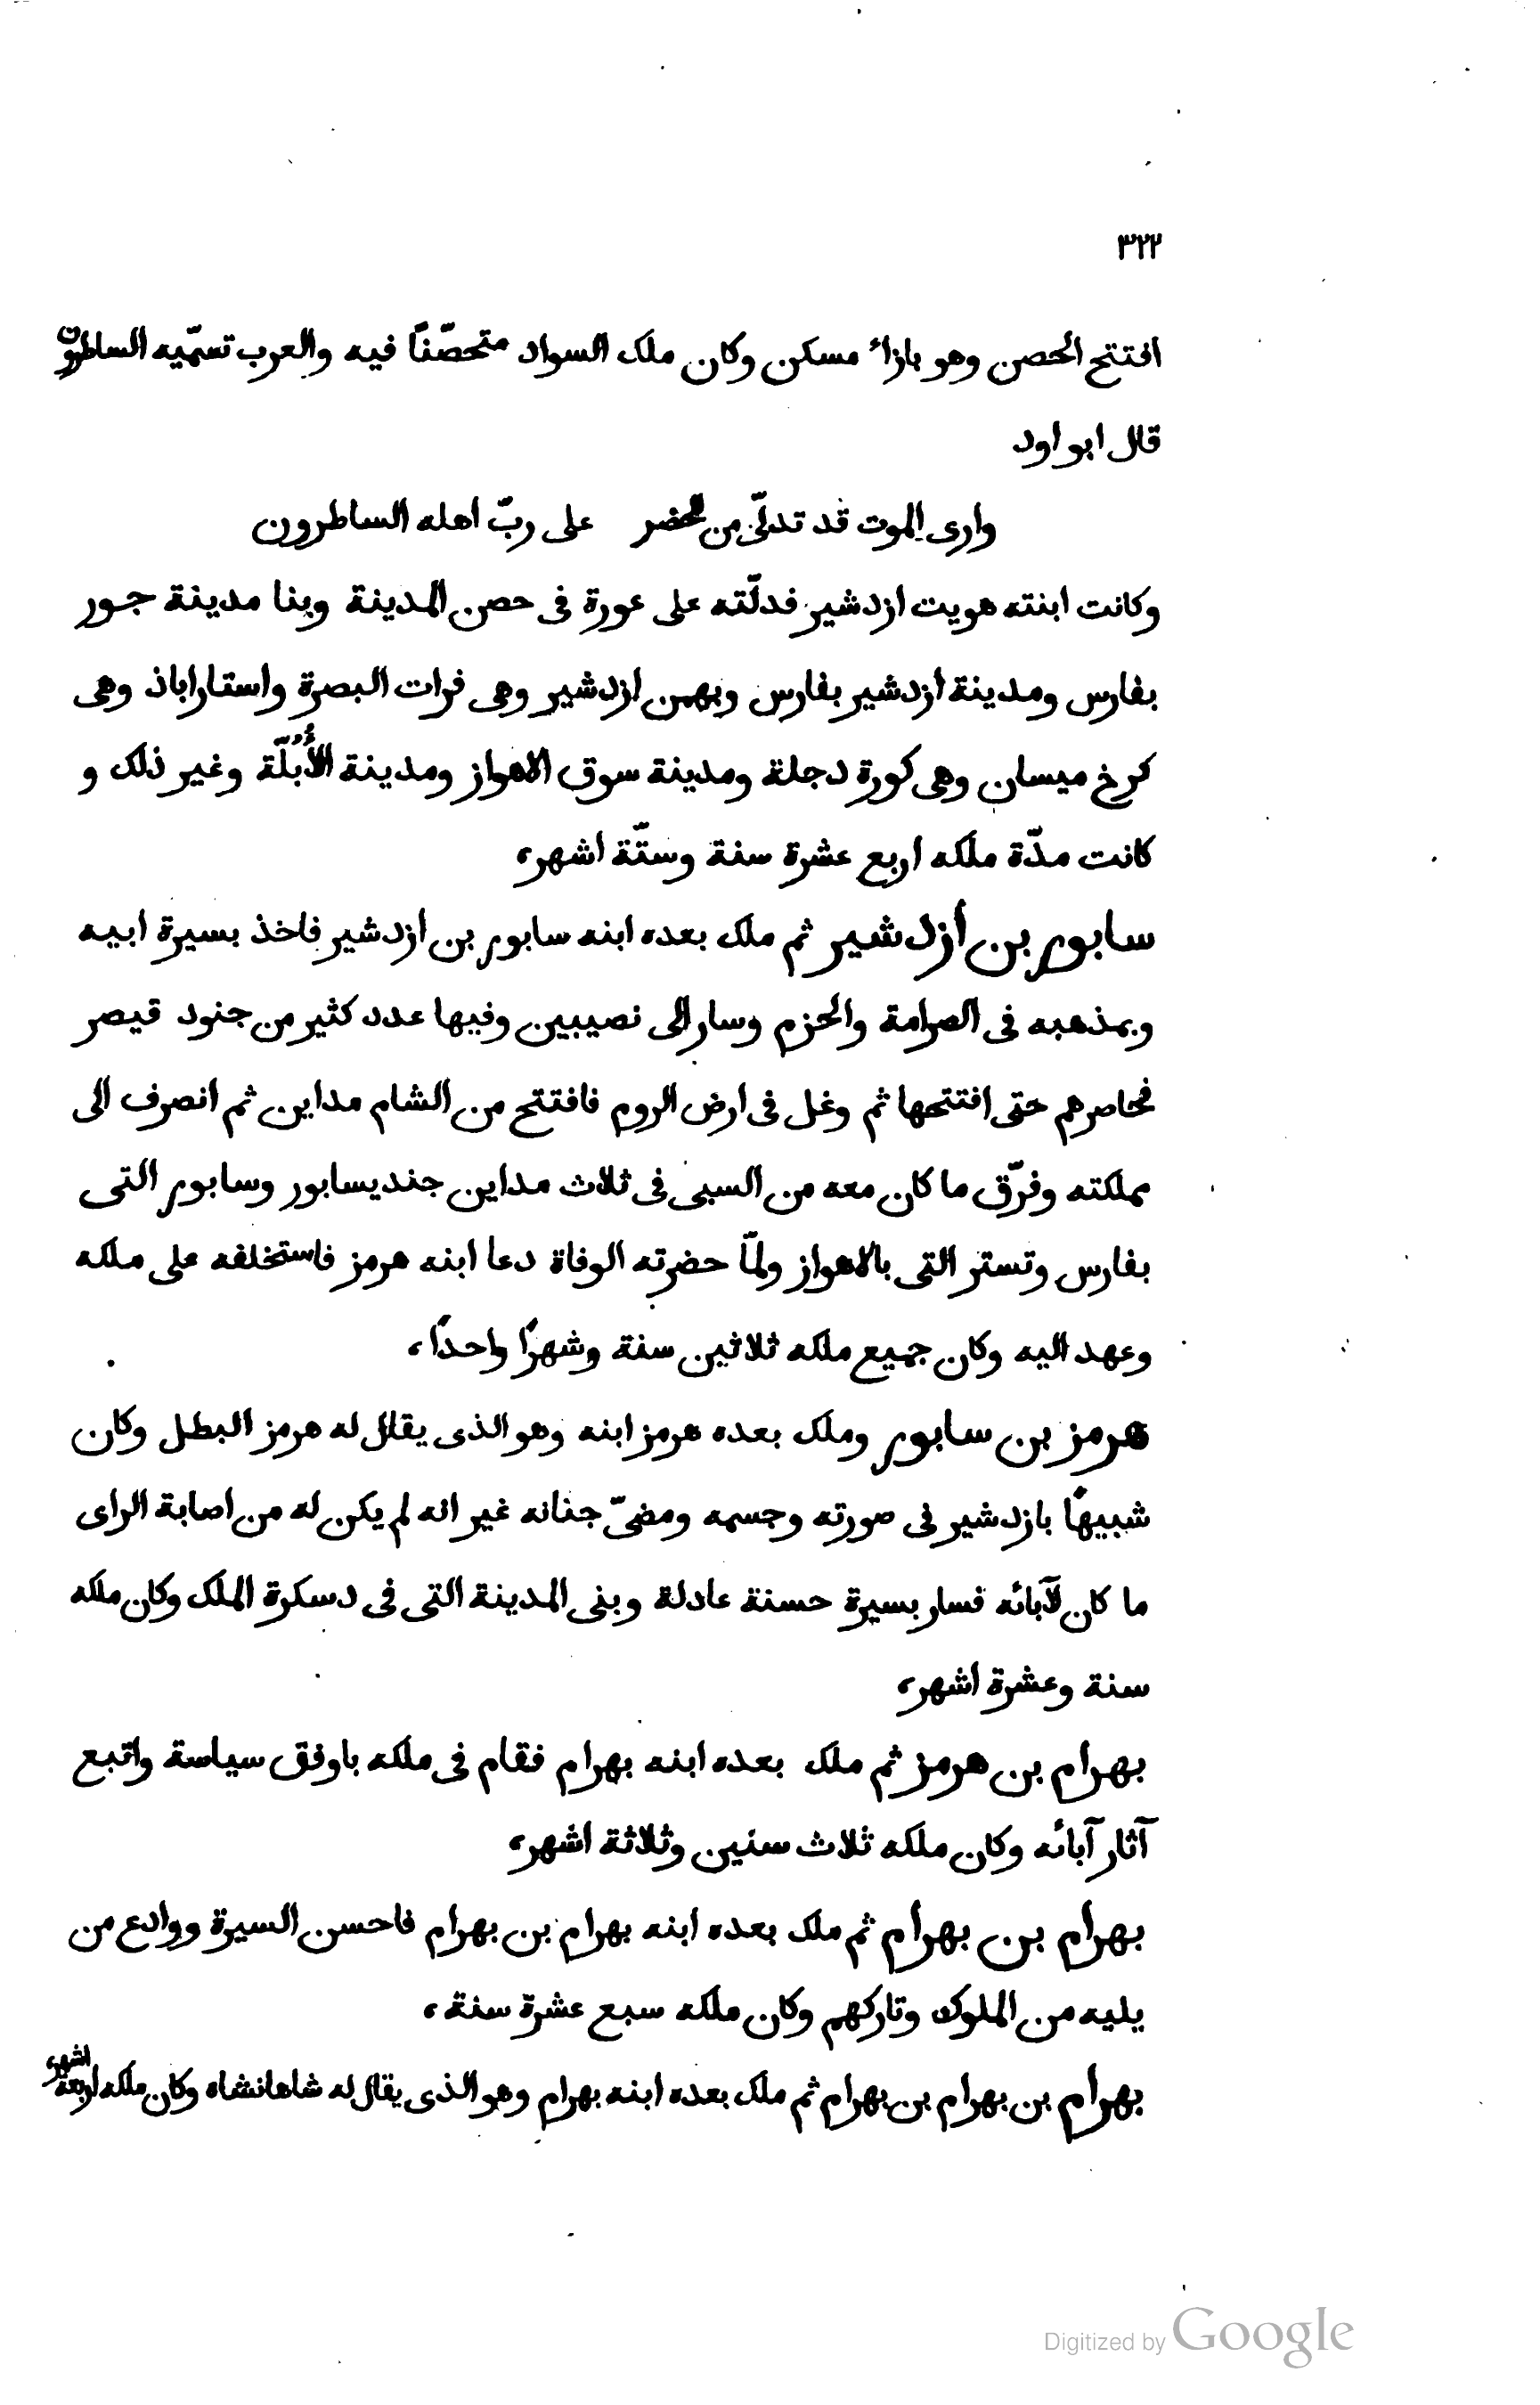 ٣٢٢
افتتح الحصن وهو بازاء مسكن وكان ملك السواد متحصّنًا فيه والعرب تسمّيه الساطرون
قال ابو اود
وارى الموت قد تدلّى من الحضر على ربّ اهله الساطرون
وكانت ابنته هويت ازدشير فدلّته على عورة فى حصن المدينة وبنا مدينة جور
بفارس ومدينة ازدشير بفارس وبهمن ازدشير وهى فرات البصرة واستاراباذ وهى
كرخ ميسان وهى كورة دجلة ومدينة سوق الاهواز ومدينة الأُبُلّة وغير ذلك و
كانت مدّة ملكه اربع عشرة سنة وستّة اشهر،
سابور بن أزدشير ثم ملك بعده ابنه سابور بن ازدشير فاخذ بسيرة ابيه
وبمذهبه فى الصرامة والحزم وسار الى نصيبين وفيها عدد كثير من جنود قيصر
فحاصرهم حتى افتتحها ثم وغل فى ارض الروم فافتتح من الشام مداين ثم انصرف الى
مملكته وفرّق ما كان معه من السبى فى ثلاث مداين جنديسابور وسابور التى
بفارس وتستر التى بالاهواز ولمّا حضرته الوفاة دعا ابنه هرمز فاستخلفه على ملكه
وعهد اليه وكان جميع ملكه ثلاثين سنة وشهرًا واحدًا،
هرمز بن سابور وملك بعده هرمز ابنه وهو الذى يقال له هرمز البطل وكان
شبيهًا بازدشير فى صورته وجسمه ومضىّ جنانه غير انه لم يكن له من اصابة الراى
ما كان لآبائه فسار بسيرة حسنة عادلة وبنى المدينة التى فى دسكرة الملك وكان ملكه
سنة وعشرة اشهر،
بهرام بن هرمز ثم ملك بعده ابنه بهرام فقام فى ملكه باوفق سياسة واتبع
آثار آبائه وكان ملكه ثلاث سنين وثلاثة اشهر،
بهرام بن بهرام ثم ملك بعده ابنه بهرام بن بهرام فاحسن السيرة ووادع من
يليه من الملوك وتاركهم وكان ملكه سبع عشرة سنة،
بهرام بن بهرام بن بهرام ثم ملك بعده ابنه بهرام وهو الذى يقال له شاهانشاه وكان ملكه اربعة اشهر،
Digitized by Google